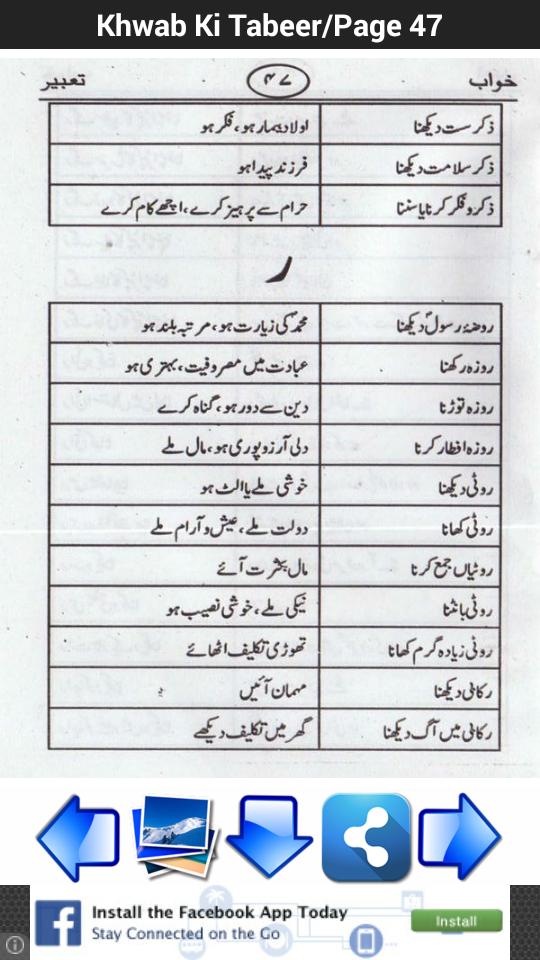 Khwab Ki Tabeer/Page 47
خواب ۴۷ تعبیر
ذکر ست دیکھنا اولاد بیمار ہو، فکر ہو
ذکر سلامت دیکھنا فرزند پیدا ہو
ذکر و فکر کرنا یا سننا حرام سے پرہیز کرے، اچھے کام کرے
ر
روضۂ رسولؐ دیکھنا محمدؐ کی زیارت ہو، مرتبہ بلند ہو
روزہ رکھنا عبادت میں مصروفیت، بہتری ہو
روزہ توڑنا دین سے دور ہو، گناہ کرے
روزہ افطار کرنا دلی آرزو پوری ہو، مال ملے
روٹی دیکھنا خوشی ملے یا الت ہو
روٹی کھانا دولت ملے، عیش و آرام ملے
روٹیاں جمع کرنا مال بکثرت آئے
روٹی بانٹنا نیکی ملے، خوشی نصیب ہو
روٹی زیادہ گرم کھانا تھوڑی تکلیف اٹھائے
رکابی دیکھنا مہمان آئیں
رکابی میں آگ دیکھنا گھر میں تکلیف دیکھے
Install the Facebook App Today
Stay Connected on the Go
Install